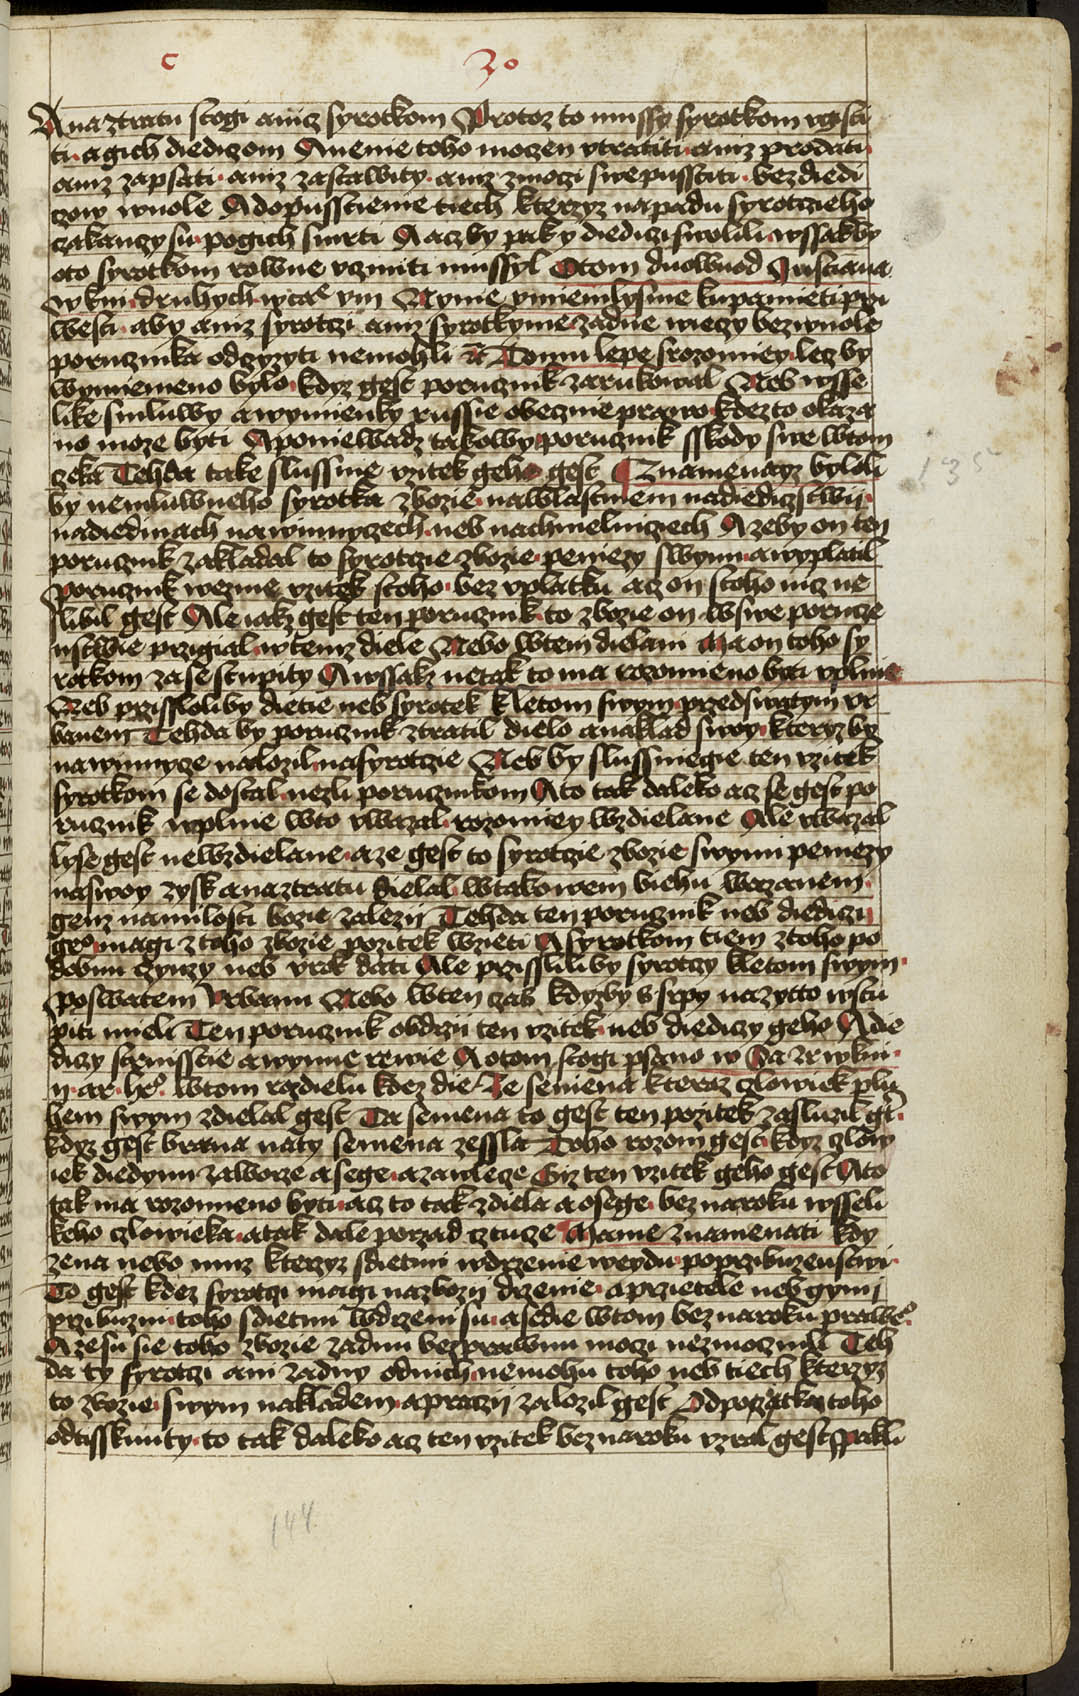 c 30
A na ztratu stogi aniz syrotkom Protoz to mussy syrotkom vgisti
ti a gich diediczom A neme toho moczen vtratiti aniz prodati
aniz zapsati aniz zastawity aniz z moczi swe pusstiti bez diedi
czow wuole A dopusstieme tiech kterzyz napadu syrotczieho
czakanczy su po gich smrti A acz by pak y dieditczi swolili wssakby
oto syrotkom rowne vcziniti mussyl O tom duowod
w kni druhych w Nynie vmienilysme ku pamieti przi
westi aby aniz syrotczi aniz syrotkynie zadne wieczy bez wuole
poruczníka odczyzyti nemohli Tomu lepe srozomiey lecz by
wymieneno bylo kdyz gest poruczník zarukowal Neb wsse
like smluwy a wymienky russie obeczne prawo kdez to okaza
no moze byti A poniewadz takowy poruczník sskody swe w tom
czeka Tehda take slussnie vzitek geho gest Znamenayz byloli
by nemluwneho syrotka zbozie na wlastniem na diedicztwij
na diedinach na winnyczech neb na chmelniczech A zeby on ten
poruczník zakladal to syrotczie zbozie peniezy swymi a wyplatil
poruczník wezme vzitek s toho bez vplatku acz on s toho nicz ne
slibil gest Ale iakz gest ten poruczník to zbozie on w swe porucze
nstwie przigial w temz diele Nebo w tem dielani Ma on toho sy
rotkom zase stupity A wssakz ne tak to ma rozomieno byti vplnie
Neb przissloliby dietie neb syrotek k letom swym przed swatym vr
banem Tehda by poruczník ztratil dielo a naklad swoy kteryz by
na winnycze nalozil na syrotczie Neb by slussniegie ten vzitek
syrotkom se dostal nezli poruczníkom A to tak daleko acz se gest po
ruczník vplnie w to vwazal rozomiey wzdielane Ale vwazal
lyse gest newzdielane a ze gest to syrotczie zbozie swymi peniezy
na swoy zysk a na ztratu dielal w takowem biehu wazanem
genz na milosti bozie zalezij Tehda ten poruczník neb diediczi
geho magi z toho zbozie pozitek wzieti A syrotkom tiem z toho po
dobnu czynzy neb vrok dati Ale przissliliby syrotczy k letom swym
po swatem Vrbanu Nebo w ten czas kdyzby s srpy na zytto wstu
piti mieli Ten poruczník obdrzij ten vzitek neb diediczy geho A die
diczy stenisstie a wynnie rewie A o tom stogi psano w
w tom rozdielu kdez die Te semena kteraz czlowiek plu
hem swym zdielal gest Ta semena to gest ten pozitek zasluzil gt
kdyz gest brana na ty semena zessla Toho rozom gest kdyz czlow
iek diedinu zaworze a sege a zawlecze Giz ten vzitek geho gest A to
tak ma rozomieno byti acz to tak zdiela a osege bez naroku wsseli
keho czlowieka a tak dale porzad cztucze Mame znamenati kdy
zena nebo muz kteryz s dietmi w drzenie weydu po przibuzenstwi
To gest kdez syrotczi magi na zbozij drzenie a przietele neb gyni
przibuzni toho s dietmi w drzeni su a sedie w tom bez naroku praweho
A ze su sie toho zbozie zadnu bezprawnu moczi nezmocznili Teh
da ty syrotczi ani zadny od nich nemohu toho neb tiech kteryz
to zbozie swym nakladem a praczij zalozil gest Od poczatka toho
odtisskniuty to tak daleko acz ten vzitek bez naroku vzral gest Pakli
135
144